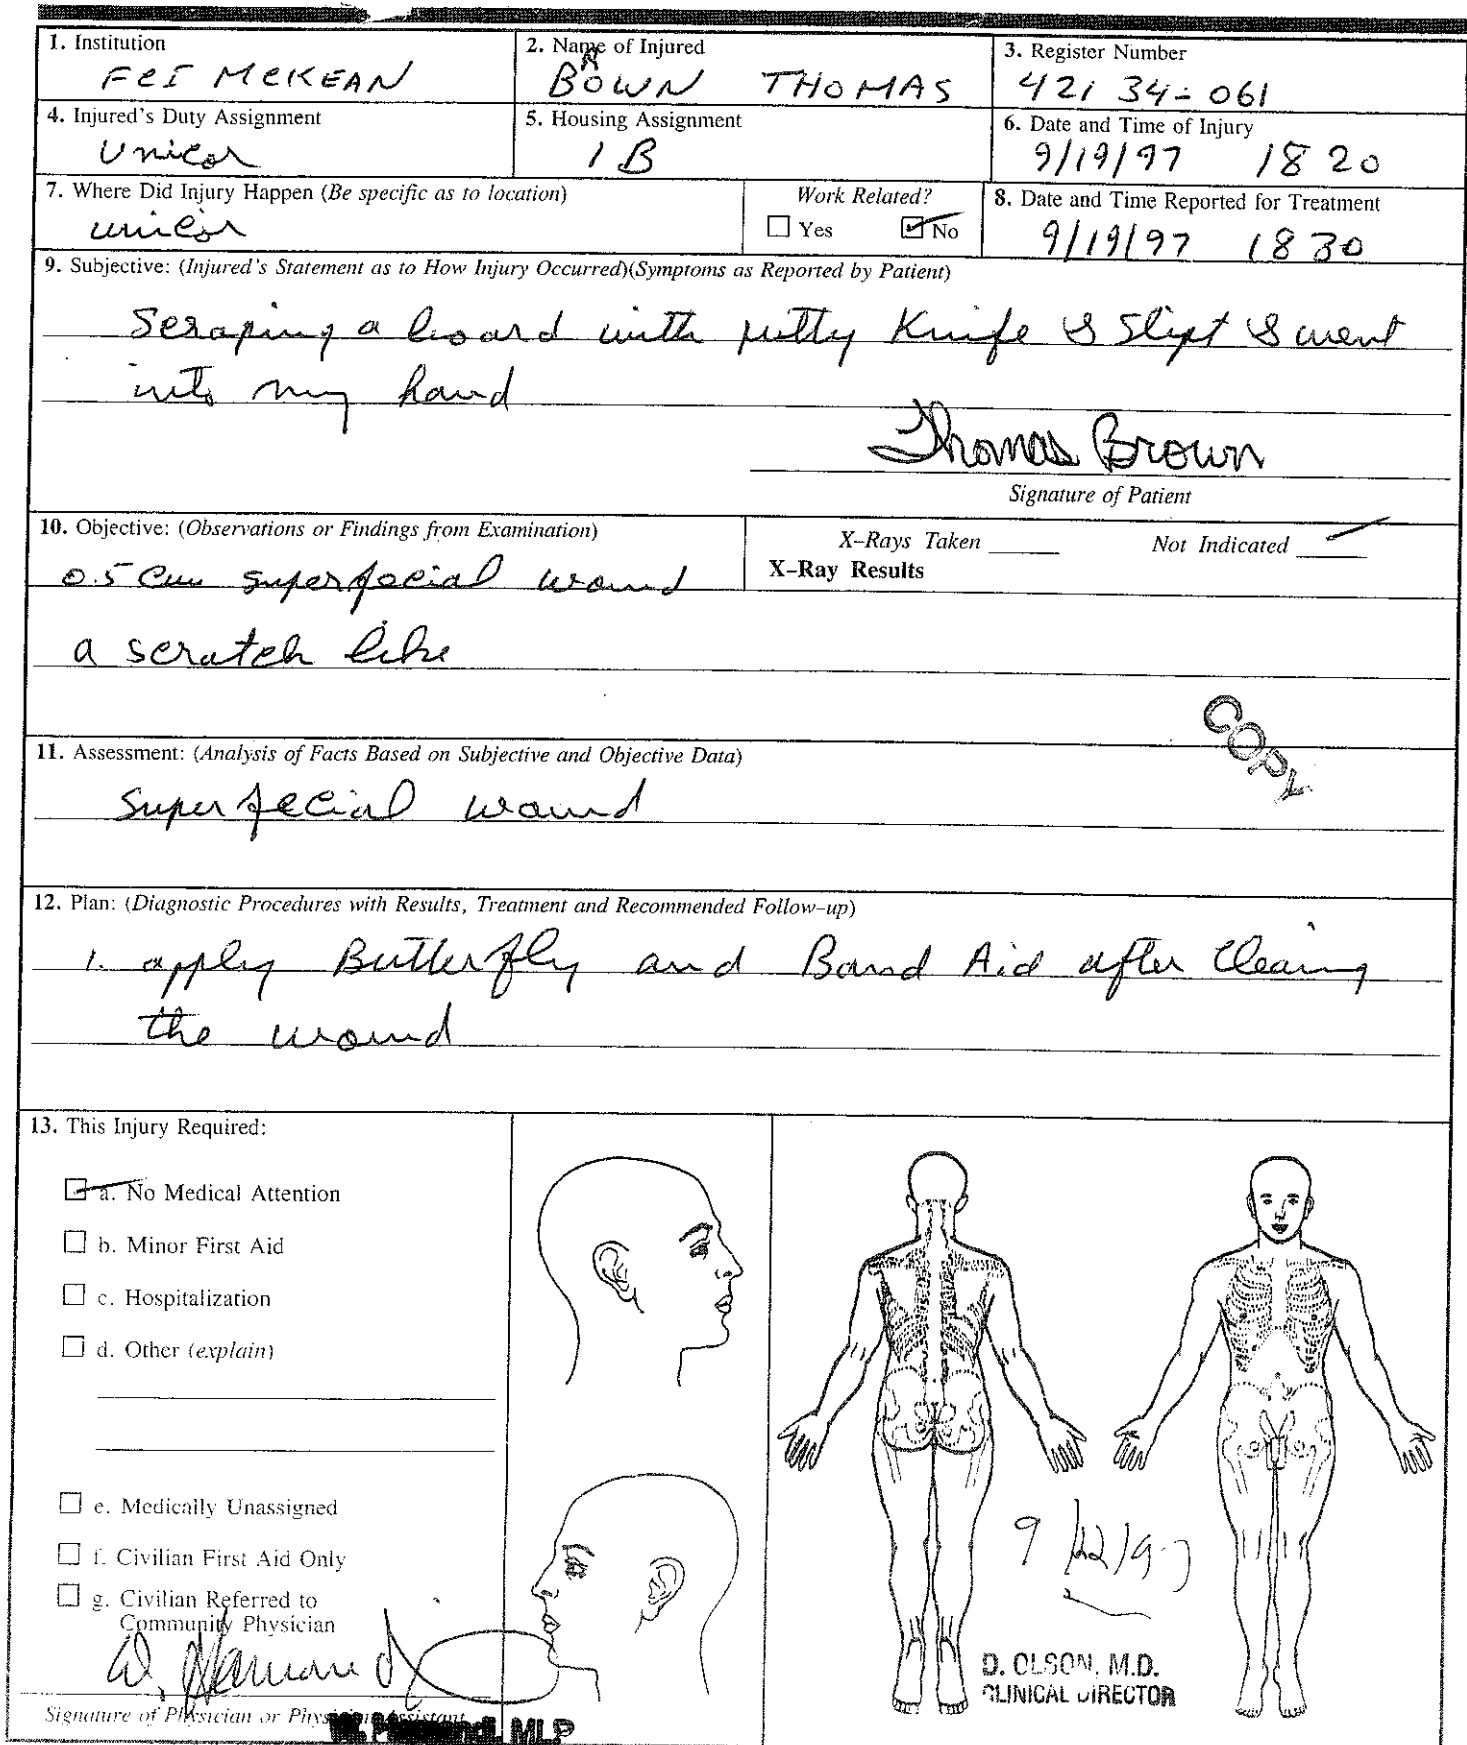 1. Institution
FCI MCKEAN
2. Name of Injured
BROWN THOMAS
3. Register Number
42134-061
4. Injured's Duty Assignment
Unicor
5. Housing Assignment
1 B
6. Date and Time of Injury
9/19/97 1820
7. Where Did Injury Happen (Be specific as to location)
unicor
Work Related?
Yes No
8. Date and Time Reported for Treatment
9/19/97 1830
9. Subjective: (Injured's Statement as to How Injury Occurred)(Symptoms as Reported by Patient)
Scraping a board with putty Knife & Slipt & went
into my hand
Thomas Brown
Signature of Patient
10. Objective: (Observations or Findings from Examination)
0.5 cm superfecial wound
a scratch like
X-Rays Taken Not Indicated
X-Ray Results
COPY
11. Assessment: (Analysis of Facts Based on Subjective and Objective Data)
Superfecial wound
12. Plan: (Diagnostic Procedures with Results, Treatment and Recommended Follow-up)
1. apply Butterfly and Band Aid after Cleaing
the wound
13. This Injury Required:
a. No Medical Attention
b. Minor First Aid
c. Hospitalization
d. Other (explain)
e. Medically Unassigned
f. Civilian First Aid Only
g. Civilian Referred to
Community Physician
Signature of Physician or Physician Assistant
MLP
9/22/97
D. OLSON, M.D.
CLINICAL DIRECTOR